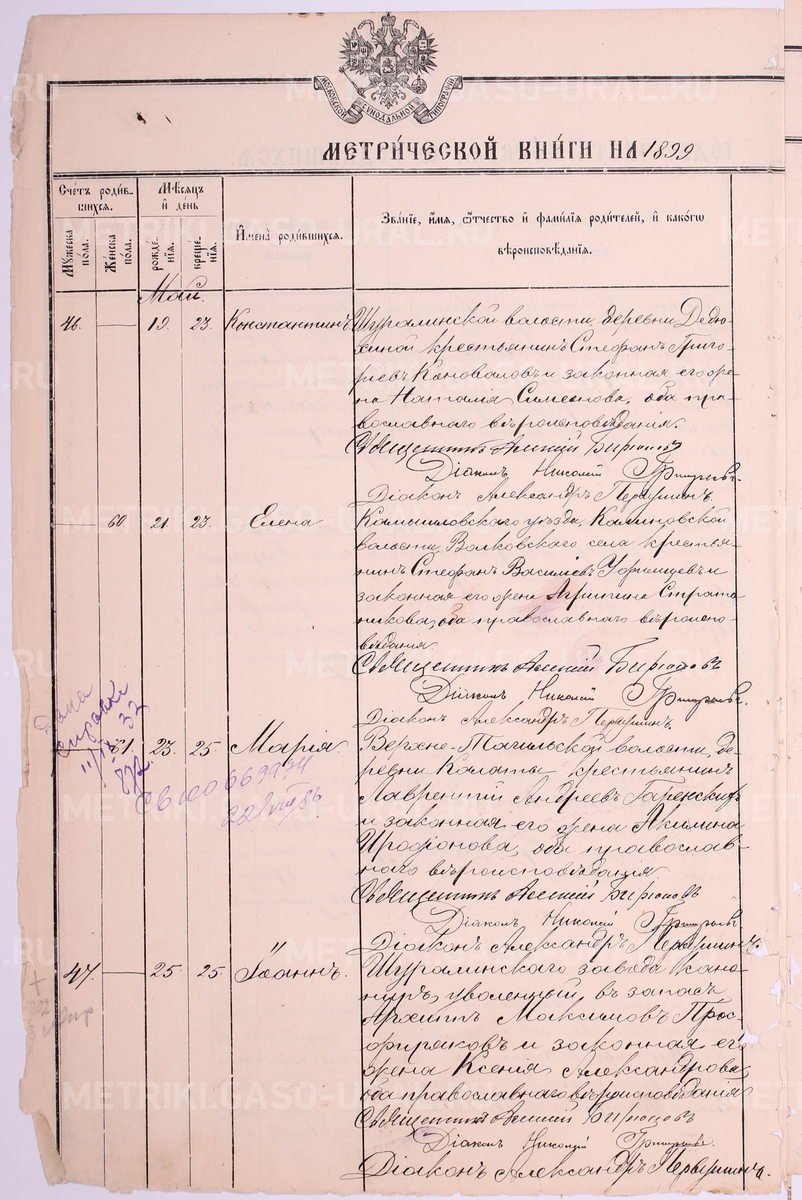 МОСКОВСКОЙ СѴНОДАЛЬНОЙ ТИПОГРАФІИ
МЕТРИ́ЧЕСКОЙ КНИ́ГИ НА 1899
Сче́тъ роди́в-
шихся.
Мꙋ́жеска по́ла.
Же́нска по́ла.
Мѣ́сяцъ и҆ де́нь
рожде́нїѧ.
креще́нїѧ.
И҆мена̀ роди́вшихся.
Зва́нїе, и҆́мѧ, ѻ҆́тчество и҆ фами́лїѧ роди́телей, и҆ како́гѡ
вѣроисповѣ́данїѧ.
Май.
46. — 19. 23. Константинъ
Шуралинской волости, деревни Дедю-
хиной крестьянинъ Стефанъ Григо-
рьевъ Коноваловъ и законная его же-
на Наталія Симеонова, оба пра-
вославнаго вѣроисповѣданія.
Священникъ Алексій
Діаконъ Николай
Діаконъ Александръ Первушинъ.
— 60 21 23. Елена
Камышловскаго уѣзда, Калиновской
волости, Волковскаго села крестья-
нинъ Стефанъ Василіевъ и
законная его жена Агрипина Страто-
никова, оба православнаго вѣроиспо-
вѣданія
Священникъ Алексій
Діаконъ Николай
Діаконъ Александръ Первушинъ.
61. 23. 25. Марія.
Верхне-Тагильской волости, де-
ревни Калаты крестьянинъ
Лаврентій Андреевъ
и законная его жена Акилина
Иродіонова, оба православ-
наго вѣроисповѣданія.
Священникъ Алексій
Діаконъ Николай
Діаконъ Александръ Первушинъ.
47. — 25. 25. Іоаннъ.
Шуралинскаго завода кано-
ниръ, уволенный въ запасъ
Архиппъ Максимовъ Прос-
фиряковъ и законная его
жена Ксенія Александрова,
оба православнаго вѣроисповѣданія
Священникъ Алексій
Діаконъ Николай
Діаконъ Александръ Первушинъ.
Дана
справка
11/IX 32
METRIKI.GASO-URAL.RU